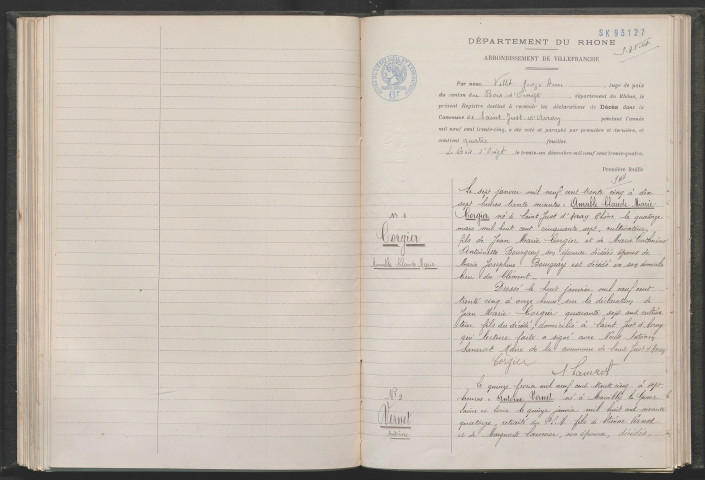 SK 93127
DÉPARTEMENT DU RHONE
ARRONDISSEMENT DE VILLEFRANCHE
Par nous, Juge de paix
du canton du Bois d'Oingt, département du Rhône, le
présent Registre destiné à recevoir les déclarations de Décès dans la
Commune de Saint-Just-d'Avray pendant l'année
mil neuf cent trente-cinq, a été coté et paraphé par première et dernière, et
contient quatre feuilles
Le Bois d'Oingt, le trente-un décembre mil neuf cent trente-quatre.
Première feuille
N° 1
Corgier
Amable Claude Marie
Le sept janvier mil neuf cent trente cinq à dix
sept heures trente minutes: Amable Claude Marie
Corgier né à Saint Just d'Avray Rhône le quatorze
mars mil huit cent cinquante sept, cultivateur,
fils de Jean Marie Corgier et de Marie
Antoinette Bourgeay son épouse décédés époux de
Marie Joséphine Bourgeay est décédé en son domicile
lieu du
Dressé le huit janvier mil neuf cent
trente cinq à onze heures sur la déclaration de
Jean Marie Corgier quarante sept ans cultiva
teur fils du décédé, domicilié à Saint Just d'Avray
qui lecture faite a signé avec Nous
Maire de la commune de Saint Just d'Avray
Corgier
N° 2
Vernet
Antoine
Le quinze février mil neuf cent trente cinq à sept
heures: Antoine Vernet né à
le quinze janvier mil huit cent soixante
quatorze, retraité du P.L.M. fils de Vernet
et de Marguerite son épouse, décédés,